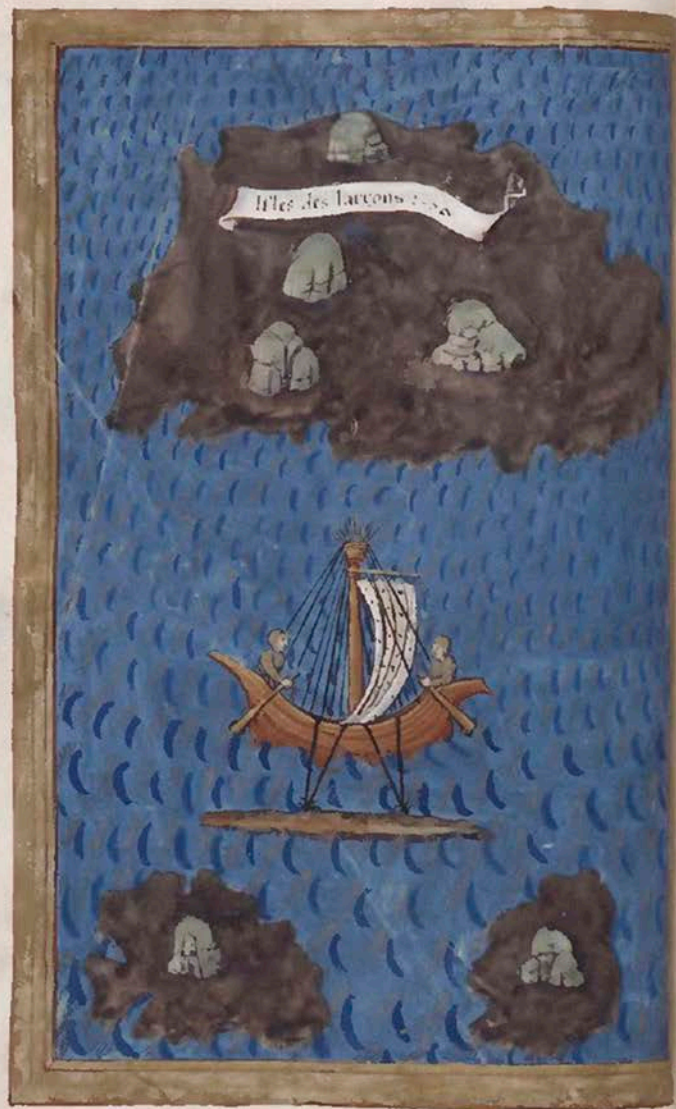 Isles des larrons